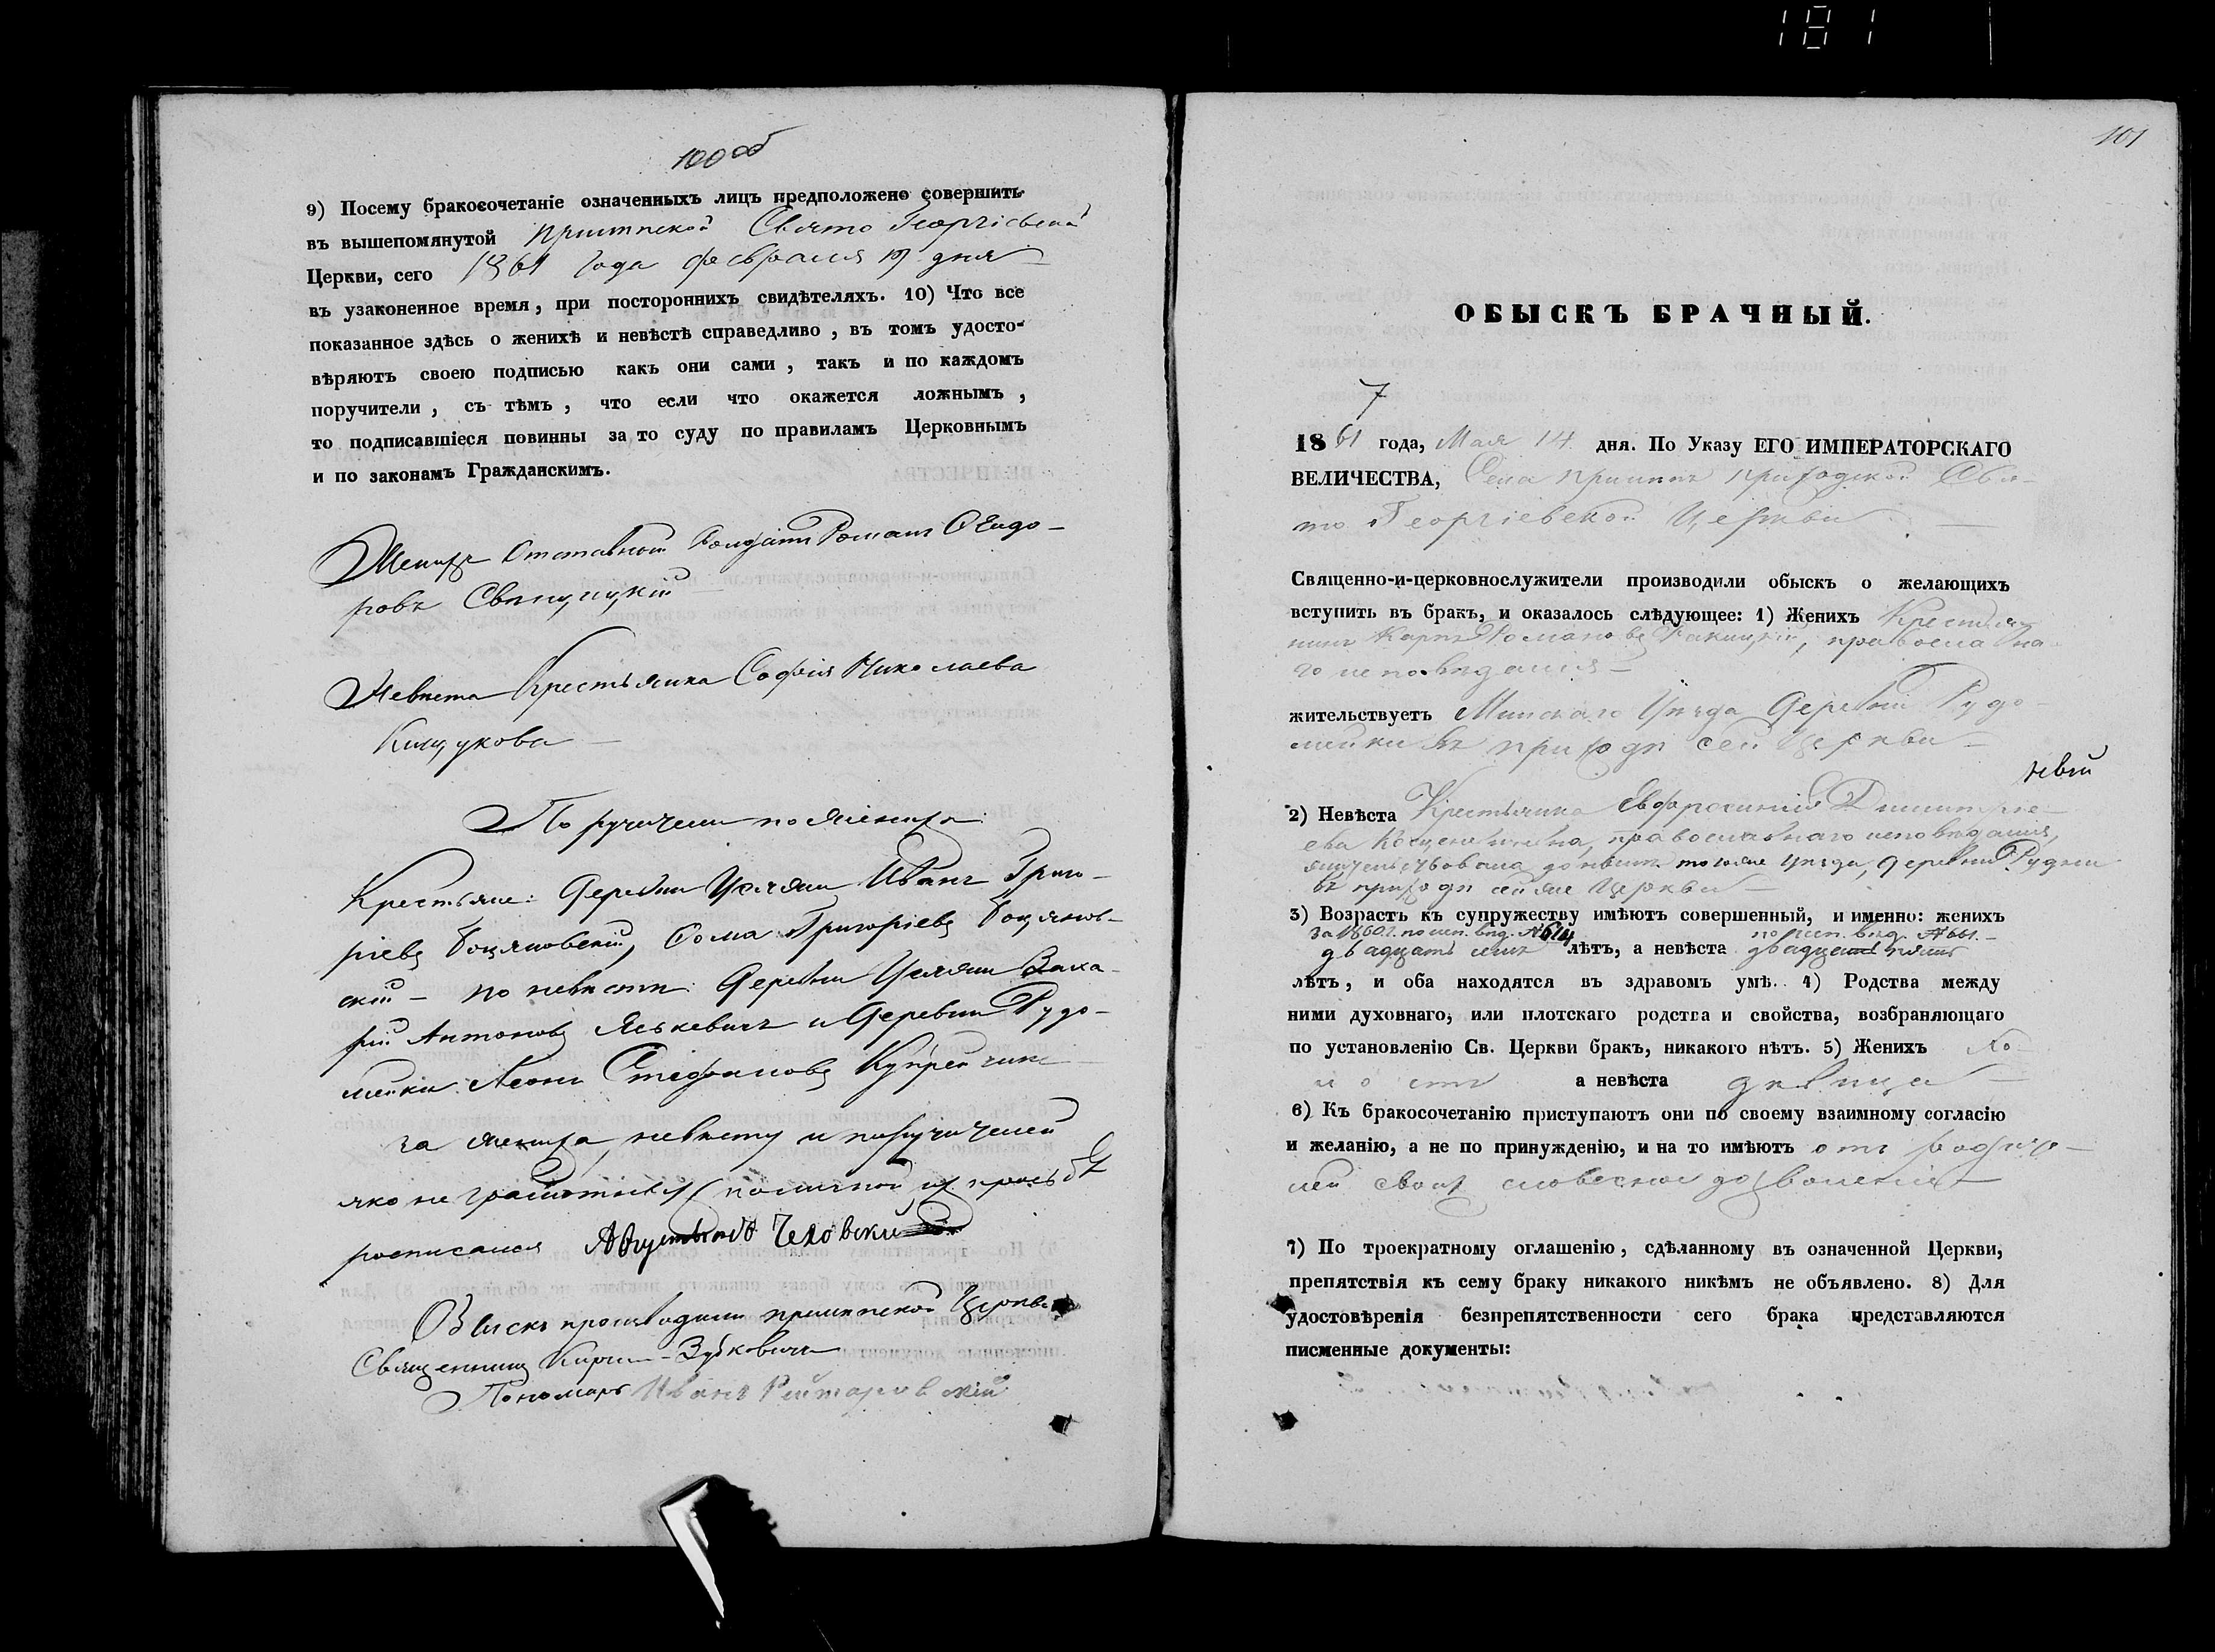 181
100 об
9) Посему бракосочетаніе означенныхъ лицъ предположено совершить
въ вышепомянутой Свято Георгіевской
Церкви, сего 1861 года февраля 19 дня
въ узаконенное время, при постороннихъ свидѣтеляхъ. 10) Что все
показанное здѣсь о женихѣ и невѣстѣ справедливо, въ томъ удосто-
вѣряютъ своею подписью какъ они сами, такъ и по каждомъ
поручители, съ тѣмъ, что если что окажется ложнымъ,
то подписавшіеся повинны за то суду по правиламъ Церковнымъ
и по законамъ Гражданскимъ.
Женихъ Отставной Солдатъ Романъ Ѳеодо-
ровъ
Невѣста Крестьянка Софія Николаева
По ручители по женихѣ
Крестьяне: Деревни Иванъ Григо-
ріевъ Ѳома Григоріевъ
скій – по невѣстѣ Деревни Заха-
рій Антоновъ Яськевичъ и Деревни Рудо-
мейки Леонъ Стефановъ
за жениха, невѣсту и поручителей
яко не грамотныхъ по личной их прозьбѣ
росписался
Обыскъ производили Церкви
Священникъ Зубковичъ
Пономарь Иванъ
101
ОБЫСКЪ БРАЧНЫЙ.
7
1861 года, Мая 14 дня. По Указу ЕГО ИМПЕРАТОРСКАГО
ВЕЛИЧЕСТВА, Села приходской Свя-
то Георгіевской Церкви
Священно-и-церковнослужители производили обыскъ о желающихъ
вступить въ бракъ, и оказалось слѣдующее: 1) Женихъ Крестья
нинъ Карпъ Романовъ православна-
го исповѣданія
жительствуетъ Минскаго Уѣзда Деревни Рудо-
мейки въ приходѣ сей Церкви
2) Невѣста Крестьянка Евфросинія Димитріе-
ева православнаго исповѣданія,
жительствовала донынѣ тогоже уѣзда, деревни Рудни
въ приходѣ сейже Церкви
3) Возрастъ къ супружеству имѣютъ совершенный, и именно: женихъ
за 1860 г. по исп. вѣд. № по исп. вѣд. № 661.
двадцать лѣтъ, а невѣста двадцать
лѣтъ, и оба находятся въ здравомъ умѣ. 4) Родства между
ними духовнаго, или плотскаго родства и свойства, возбраняющаго
по установленію Св. Церкви бракъ, никакого нѣтъ. 5) Женихъ Хо-
лостъ а невѣста дѣвица
6) Къ бракосочетанію приступаютъ они по своему взаимному согласію
и желанію, а не по принужденію, и на то имѣютъ отъ родите-
лей своих словесное дозволеніе
7) По троекратному оглашенію, сдѣланному въ означенной Церкви,
препятствія къ сему браку никакого никѣмъ не объявлено. 8) Для
удостовѣренія безпрепятственности сего брака представляются
писменные документы: